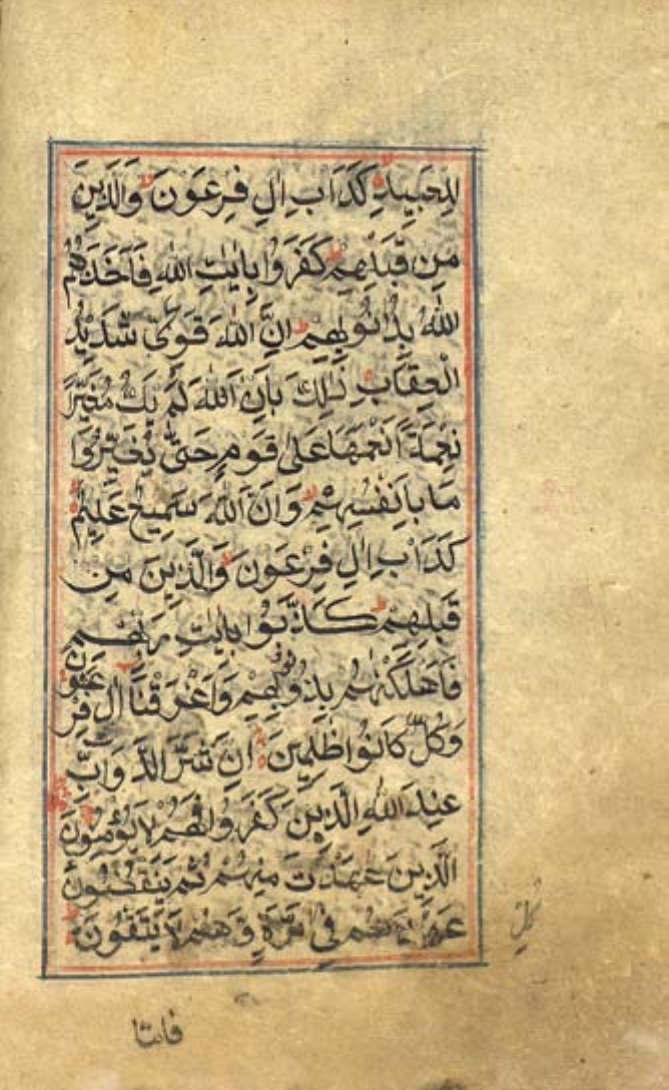 للعبيد كَدَاْبِ اٰلِ فِرْعَوْنَ وَالَّذِيْنَ
مِنْ قَبْلِهِمْ كَفَرُوْا بِاٰيٰتِ اللهِ فَاَخَذَهُمُ
اللهُ بِذُنُوْبِهِمْ اِنَّ اللهَ قَوِيٌّ شَدِيْدُ
الْعِقَابِ ذٰلِكَ بِاَنَّ اللهَ لَمْ يَكُ مُغَيِّرًا
نِعْمَةً اَنْعَمَهَا عَلٰى قَوْمٍ حَتّٰى يُغَيِّرُوْا
مَا بِاَنْفُسِهِمْ وَاَنَّ اللهَ سَمِيْعٌ عَلِيْمٌ
كَدَاْبِ اٰلِ فِرْعَوْنَ وَالَّذِيْنَ مِنْ
قَبْلِهِمْ كَذَّبُوْا بِاٰيٰتِ رَبِّهِمْ
فَاَهْلَكْنٰهُمْ بِذُنُوْبِهِمْ وَاَغْرَقْنَا اٰلَ فِرْعَوْنَ
وَكُلٌّ كَانُوْا ظٰلِمِيْنَ اِنَّ شَرَّ الدَّوَآبِّ
عِنْدَ اللهِ الَّذِيْنَ كَفَرُوْا فَهُمْ لَا يُؤْمِنُوْنَ
الَّذِيْنَ عٰهَدْتَ مِنْهُمْ ثُمَّ يَنْقُضُوْنَ
عَهْدَهُمْ فِيْ مَرَّةٍ وَّهُمْ لَا يَتَّقُوْنَ
فاما